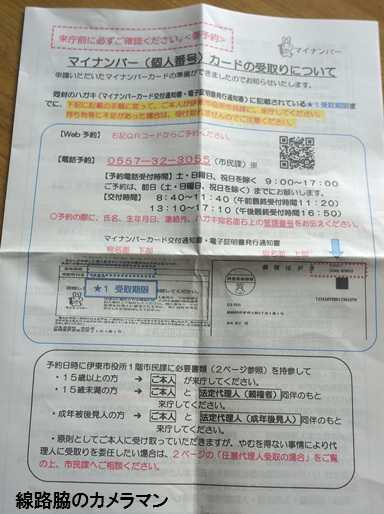 来庁前に必ずご確認ください＜要予約＞
マイナンバー
マイナンバー（個人番号）カードの受取りについて
申請いただいたマイナンバーカードの準備ができましたのでお知らせいたします。
同封のハガキ（マイナンバーカード交付通知書・電子証明書発行通知書）に記載されている★1受取期限ま
でに、下記に記載の手順に従って、ご本人が伊東市役所市民課に、来庁してください。
持ち物等に不足があった場合は、受け取れませんのでご注意ください。
【Web予約】 右記QRコードからご予約ください。
【電話予約】 0557-32-3055（市民課）※
【予約電話受付時間】土・日曜日、祝日を除く 9：00～17：00
ご予約は、前日（土・日曜日、祝日を除く）までにお願いします。
【交付時間】 8：40～11：40（午前最終受付11：20）
13：10～17：10（午後最終受付16：50）
◎予約の際に、氏名、生年月日、連絡先、ハガキ宛名面右上の管理番号をお伝えください。
マイナンバーカード交付通知書・電子証明書発行通知書
宛名面 下部
宛名面 上部
★1 受取期限
郵便はがき
予約日時に伊東市役所1階市民課に必要書類（2ページ参照）を持参して
・15歳以上の方 → ご本人 が来庁してください。
・15歳未満の方 → ご本人 と 法定代理人（親権者） 同伴のもと
来庁してください。
・成年被後見人の方 → ご本人 と 法定代理人（成年後見人） 同伴のもと
来庁してください。
・原則としてご本人に受け取っていただきますが、やむを得ない事情により代理
人に受取りを委任したい場合は、2ページの「任意代理人受取の場合」をご覧
の上、市民課へご相談ください。
線路脇のカメラマン